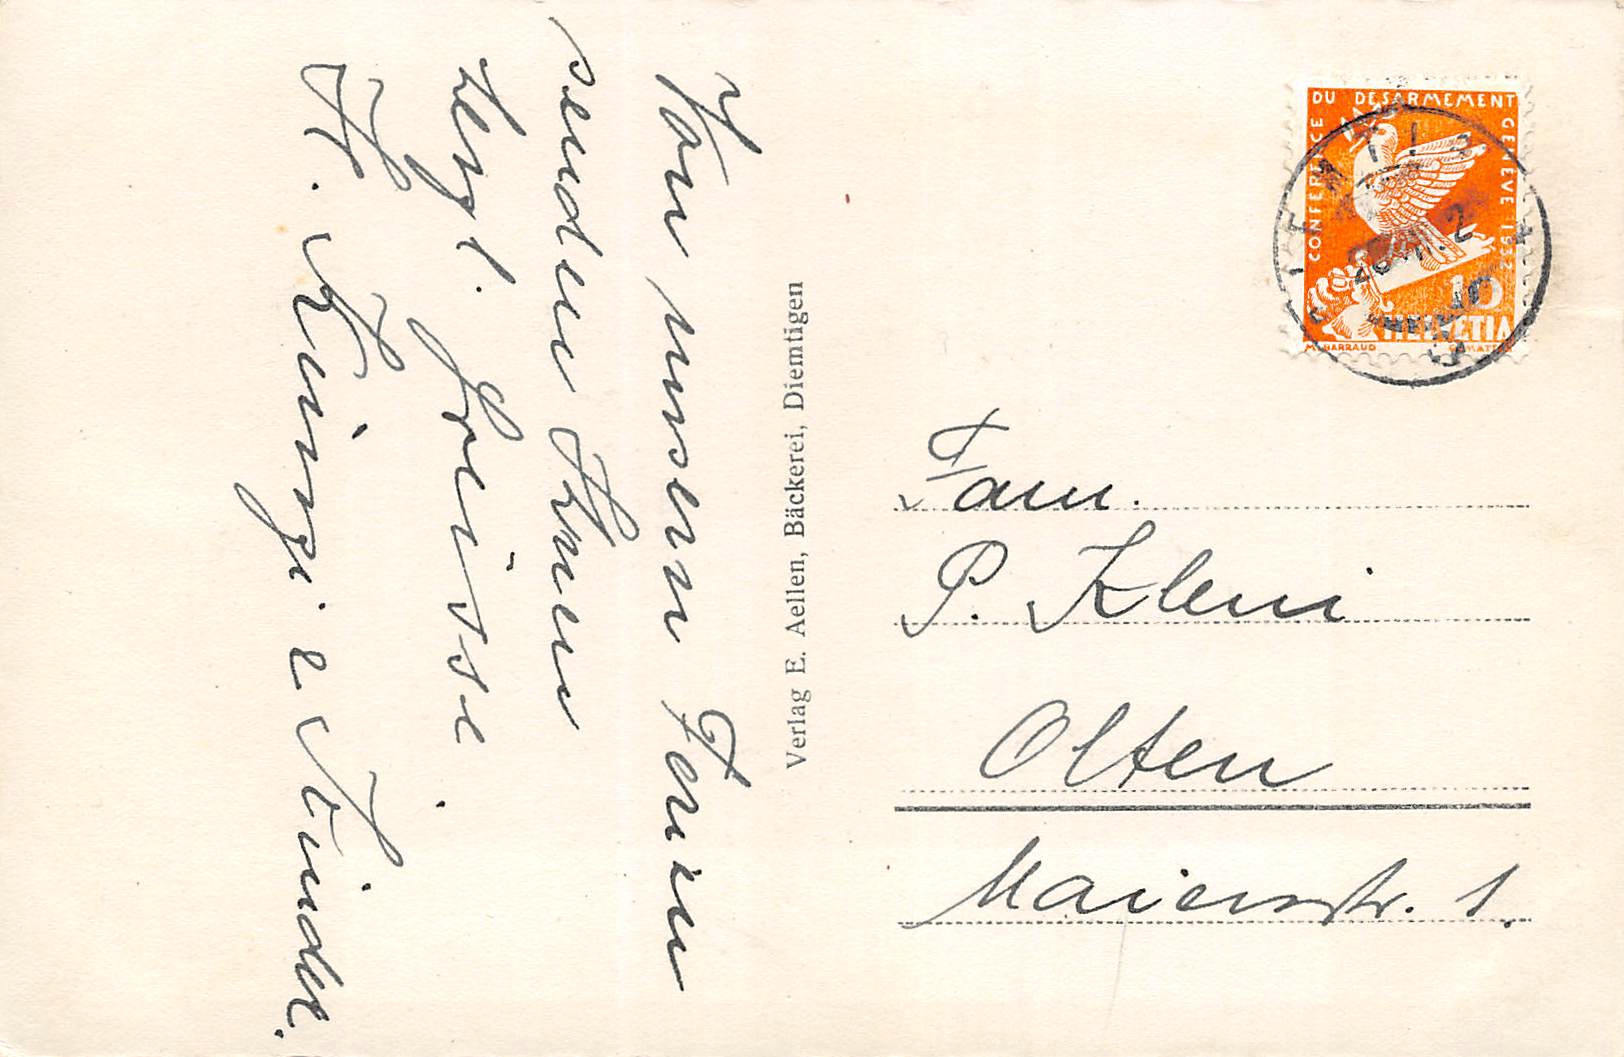 Von unsern Ferien
senden Ihnen
herzl. Grüsse
Verlag E. Aellen, Bäckerei, Diemtigen
CONFERENCE DU DESARMEMENT GENEVE 1932
10
HELVETIA
M. BARRAUD
Fam.
P. Kleni
Olten
Maienstr. 1.